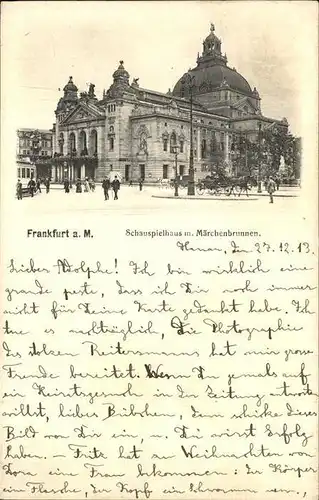 Frankfurt a. M.
Schauspielhaus m. Märchenbrunnen.
Hanau, den 27.12.13
Lieber Adolphe! Ich bin wirklich eine
grande peste, dass ich Dir noch immer
nicht für Deine Karte gedankt habe. Ich
tue es nachträglich, Die Photographie
des stolzen Reitersmanns hat mir grosse
Freude bereitet. Wenn Du jemals auf
ein Heiratsgesuch in der Zeitung
willst, lieber Bübchen, dann schicke dieses
Bild von Dir ein, u. Du wirst Erfolg
haben. - Fritz hat zu Weihnachten von
Dora eine Frau bekommen: der Körper
eine Flasche, der Kopf ein